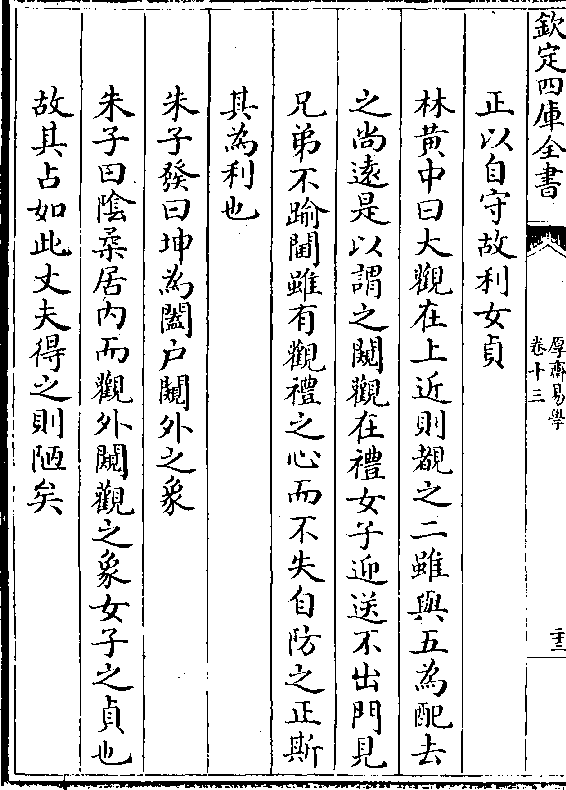 欽定四庫全書
厚齋易學
卷十三
二十三
正以自守故利女貞
林黃中曰大觀在上近則覩之二雖與五為配去
之尚遠是以謂之闚觀在禮女子迎送不出門見
兄弟不踰閾雖有觀禮之心而不失自防之正斯
其為利也
朱子發曰坤為闔户闚外之象
朱子曰陰柔居内而觀外闚觀之象女子之貞也
故其占如此丈夫得之則陋矣